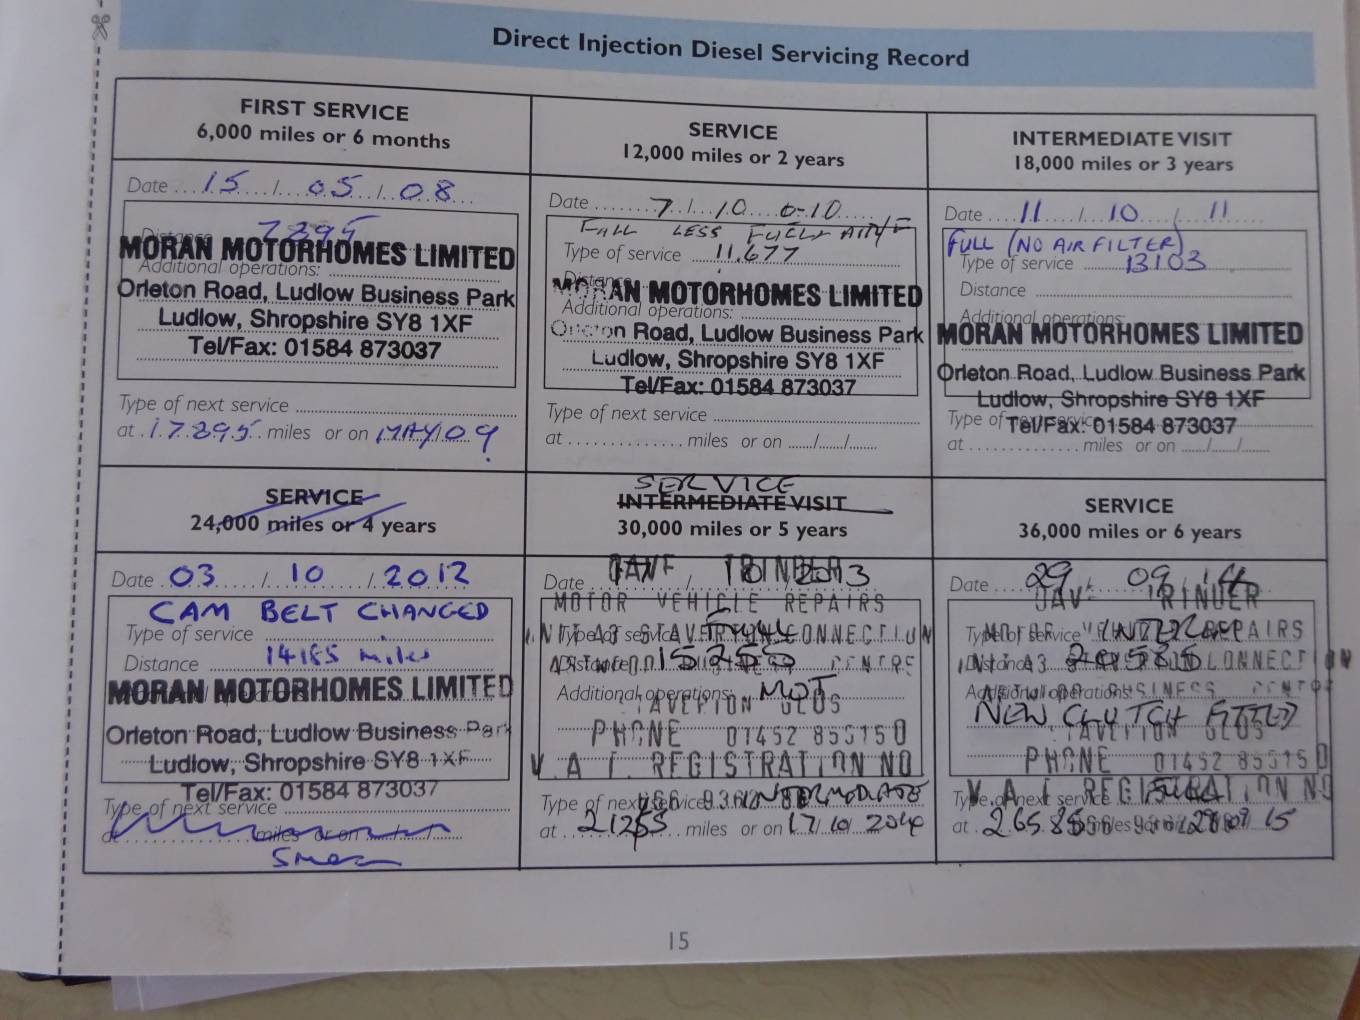 Direct Injection Diesel Servicing Record
FIRST SERVICE
6,000 miles or 6 months
Date 15 / 05 / 08
7895
MORAN MOTORHOMES LIMITED
Additional operations:
Orleton Road, Ludlow Business Park
Ludlow, Shropshire SY8 1XF
Tel/Fax: 01584 873037
Type of next service
at 17895 miles or on MAY/09
SERVICE
12,000 miles or 2 years
Date 7 / 10
FULL LESS FUEL
Type of service 11,677
Distance
MORAN MOTORHOMES LIMITED
Additional operations:
Orleton Road, Ludlow Business Park
Ludlow, Shropshire SY8 1XF
Tel/Fax: 01584 873037
Type of next service
at miles or on / /
INTERMEDIATE VISIT
18,000 miles or 3 years
Date 11 / 10 / 11
FULL (NO AIR FILTER)
Type of service 13103
Distance
Additional operations:
MORAN MOTORHOMES LIMITED
Orleton Road, Ludlow Business Park
Ludlow, Shropshire SY8 1XF
Type of next service Tel/Fax: 01584 873037
at miles or on / /
SERVICE
24,000 miles or 4 years
Date 03 / 10 / 2012
CAM BELT CHANGED
Type of service
Distance 14185 miles
MORAN MOTORHOMES LIMITED
Orleton Road, Ludlow Business Park
Ludlow, Shropshire SY8 1XF
Tel/Fax: 01584 873037
Type of next service
at miles or on
SERVICE
INTERMEDIATE VISIT
30,000 miles or 5 years
Date
MOTOR VEHICLE REPAIRS
UNIT A3 STAVERTON CONNECTION
Type of service FULL
Distance 15255 CENTRE
Additional operations: MOT
STAVERTON GLOS
PHONE 01452 855150
V.A.T. REGISTRATION NO
Type of next service INTERMEDIATE
at 21255 miles or on 17/10/2014
SERVICE
36,000 miles or 6 years
Date 29 09 14
DAVE TRINDER
Type of service INTER REPAIRS
Distance 20585 CONNECTION
Additional operations: BUSINESS CENTRE
NEW CLUTCH FITTED
STAVERTON GLOS
PHONE 01452 855150
V.A.T. REGISTRATION NO
Type of next service
at 26585 miles or on 15
15